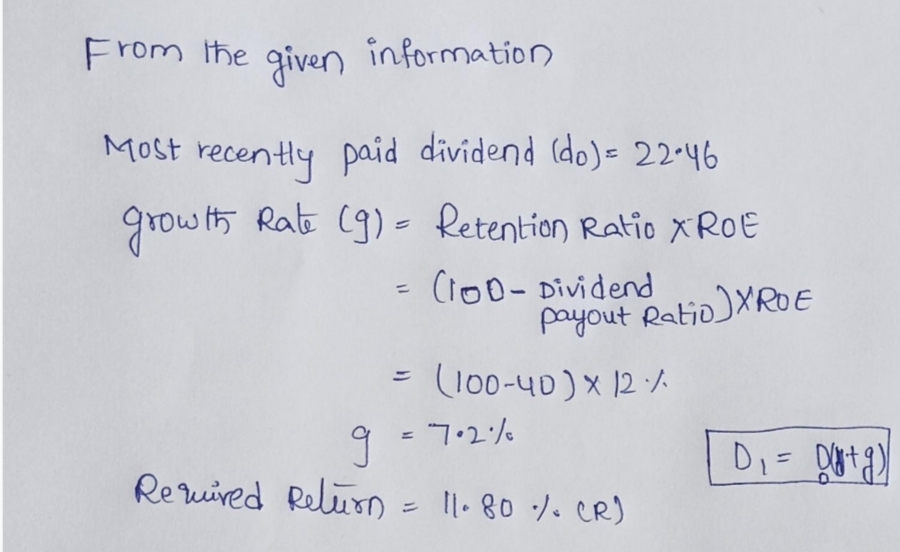 From the given information
Most recently paid dividend (do)= 22.46
growth Rate (g) = Retention Ratio X ROE
= (100- Dividend payout Ratio) X ROE
= (100-40) x 12 %
g = 7.2%
D1 = D0(1+g)
Required Return = 11.80 % (R)